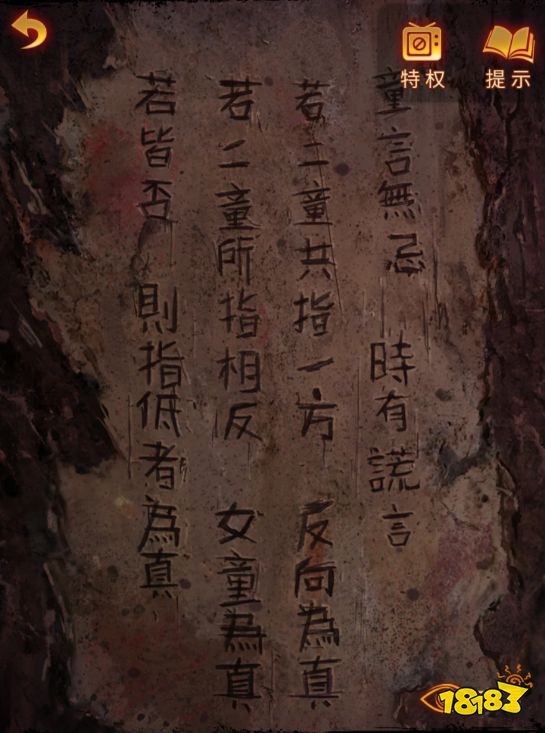 特权
提示
童言無忌 時有謊言
若二童共指一方 反向為真
若二童所指相反 女童為真
若皆否 則指低者為真
18183